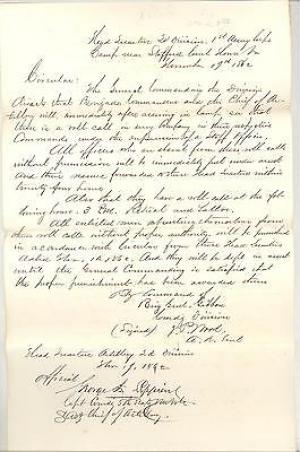 Head Quarters 2d Division. 1st Army Corps
Camp near Stafford Court House Va
November 19th 1862
Circular:
The General Commanding the Division
directs that Brigade Commanders and the Chief of Ar-
tillery will immediately after arriving in camp, see that
there is a roll call in every company in their respective
Commands, under the supervision of a staff officer.
All officers who are absent from these roll calls
without permission will be immediately put under arrest
and their names forwarded to these Head Quarters within
twenty four hours.
Also that they have a roll call at the fol-
lowing hours: 3 Retreat and Tattoo.
All enlisted men absenting themselves from
these roll calls without proper authority will be punished
in accordance with Circular from these Head Quarters
dated 1862. And they will be kept in arrest
until the General Commanding is satisfied that
the proper punishment has been awarded them
By Command of
Brig Genl. Gibbon
Comdg Division
(Signed) J. P. Wood
A. A. Genl
Head Quarters Artillery 2d Division
Nov 19, 1862
Official
George
Capt Comdg 5th
Chief of Artillery